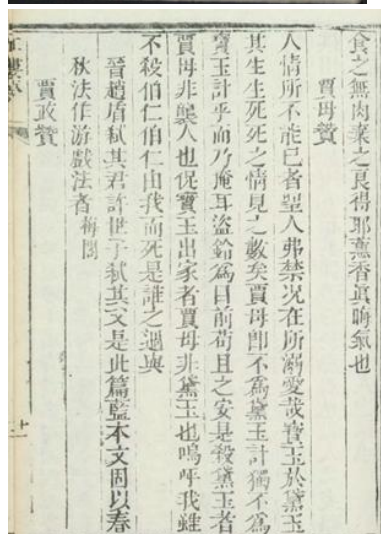 食之無肉棄之良得耶薰香真晦氣也
賈母贊
人情所不能已者聖人弗禁況在所溺愛哉寶玉於黛玉
其生生死死之情見之數矣賈母卽不爲黛玉計獨不爲
寶玉計乎而乃掩耳盜鈴爲目前苟且之安是殺黛玉者
賈母非襲人也促寶玉出家者賈母非黛玉也嗚呼我雖
不殺伯仁伯仁由我而死是誰之過與
晉趙盾弑其君許世子弑其父是此篇藍本文固以春
秋法作游戲法者梅閣
賈政贊
十一